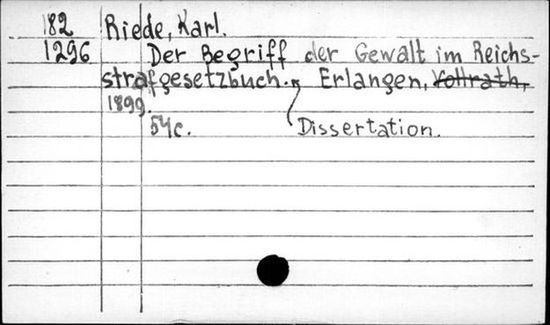 182 Riede, Karl.
1296 Der Begriff der Gewalt im Reichs-
strafgesetzbuch. Erlangen, Vollrath,
1899.
54c. Dissertation.